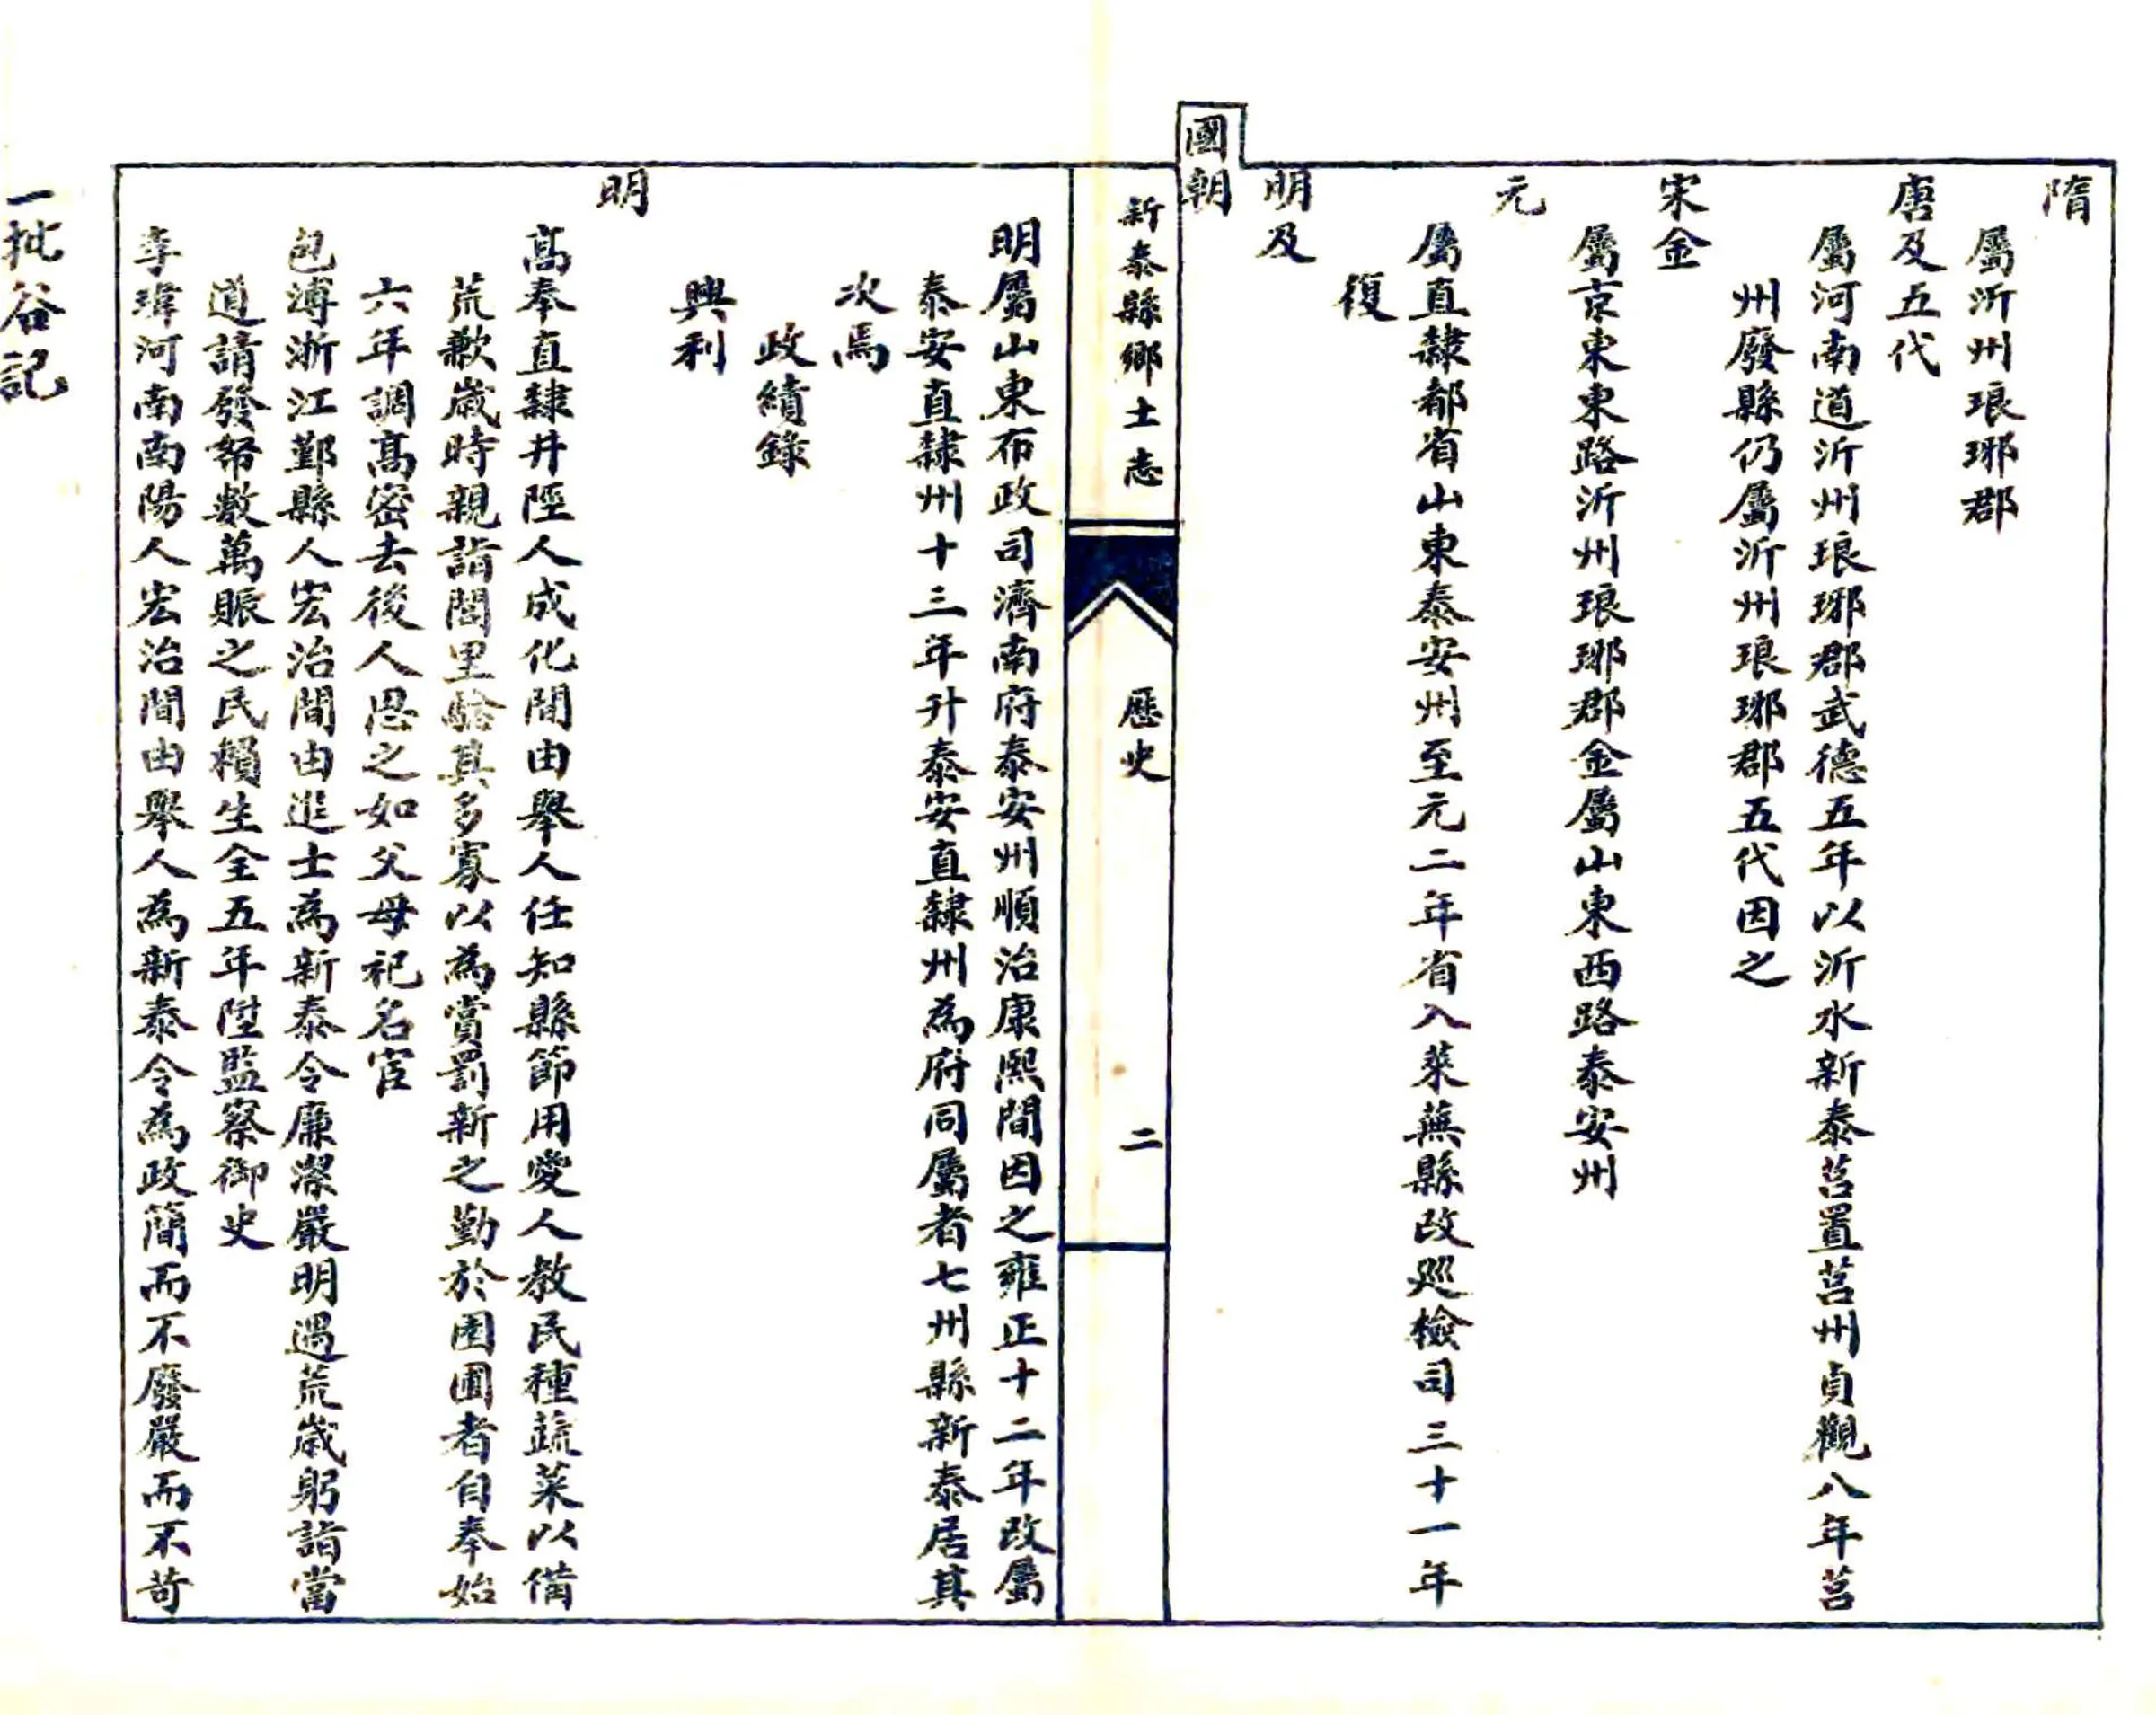 隋
屬沂州琅琊郡
唐及五代
屬河南道沂州琅琊郡武德五年以沂水新泰莒置莒州貞觀八年莒
州廢縣仍屬沂州琅琊郡五代因之
宋金
屬京東東路沂州琅琊郡金屬山東西路泰安州
元
屬直隸都省山東泰安州至元二年省入萊蕪縣改廵檢司三十一年
復
明及
國朝
新泰縣鄉土志
歷史
二
明屬山東布政司濟南府泰安州順治康熙間因之雍正十二年改屬
泰安直隸州十三年升泰安直隸州為府同屬者七州縣新泰居其
次焉
政績錄
興利
明
髙奉直隸井陘人成化間由舉人任知縣節用愛人教民種蔬菜以備
荒歉嵗時親詣閭里驗其多寡以為賞罰新之勤於園圃者自奉始
六年調髙密去後人思之如父母祀名宦
包溥浙江鄞縣人宏治間由進士為新泰令廉潔嚴明遇荒嵗躬詣當
道請發帑數萬賑之民賴生全五年陞監察御史
李瑋河南南陽人宏治間由舉人為新泰令為政簡而不廢嚴而不苛
一批谷記